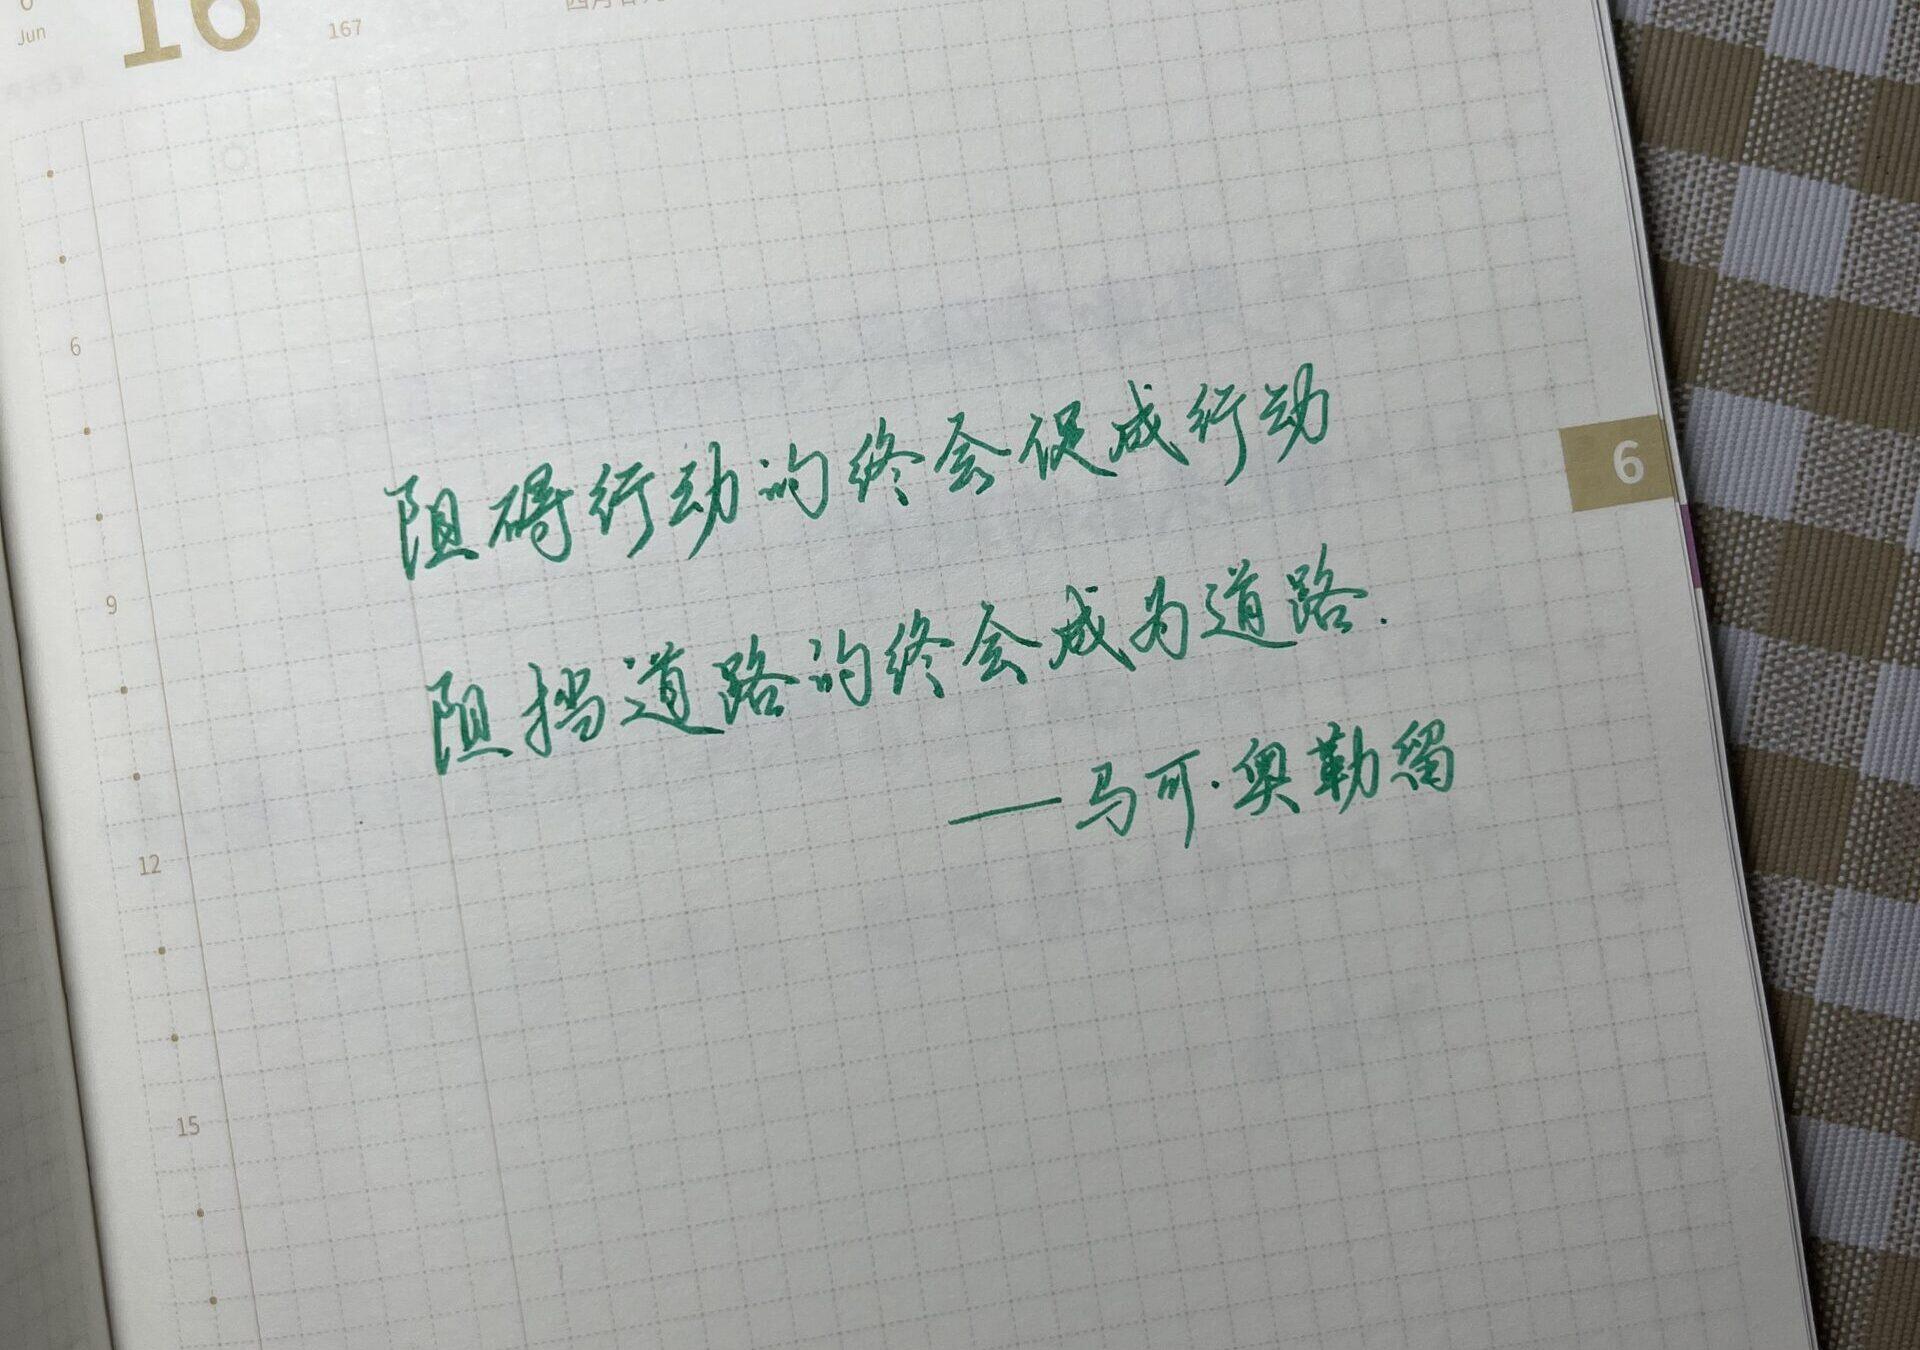 Jun
16
167
阻碍行动的终会促成行动
阻挡道路的终会成为道路.
——马可·奥勒留
6
9
12
15
6